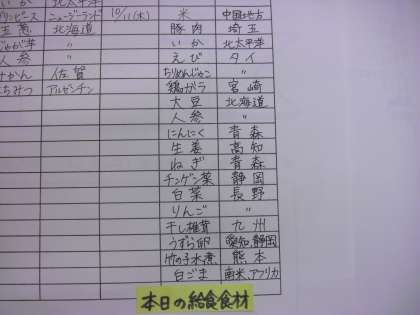 いか 北太平洋
グリンピース ニュージーランド 10/11(木) 米 中国地方
玉葱 北海道 豚肉 埼玉
じゃが芋 〃 いか 北太平洋
人参 〃 えび タイ
みかん 佐賀 ちりめんじゃこ 〃
はちみつ アルゼンチン 鶏ガラ 宮崎
大豆 北海道
人参 〃
にんにく 青森
生姜 高知
ねぎ 青森
チンゲン菜 静岡
白菜 長野
りんご 〃
干し椎茸 九州
うずら卵 愛知、静岡
竹の子水煮 熊本
白ごま 南米、アフリカ
本日の給食食材